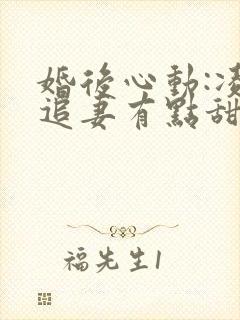 婚後心動:凌
追妻有點甜
福先生1